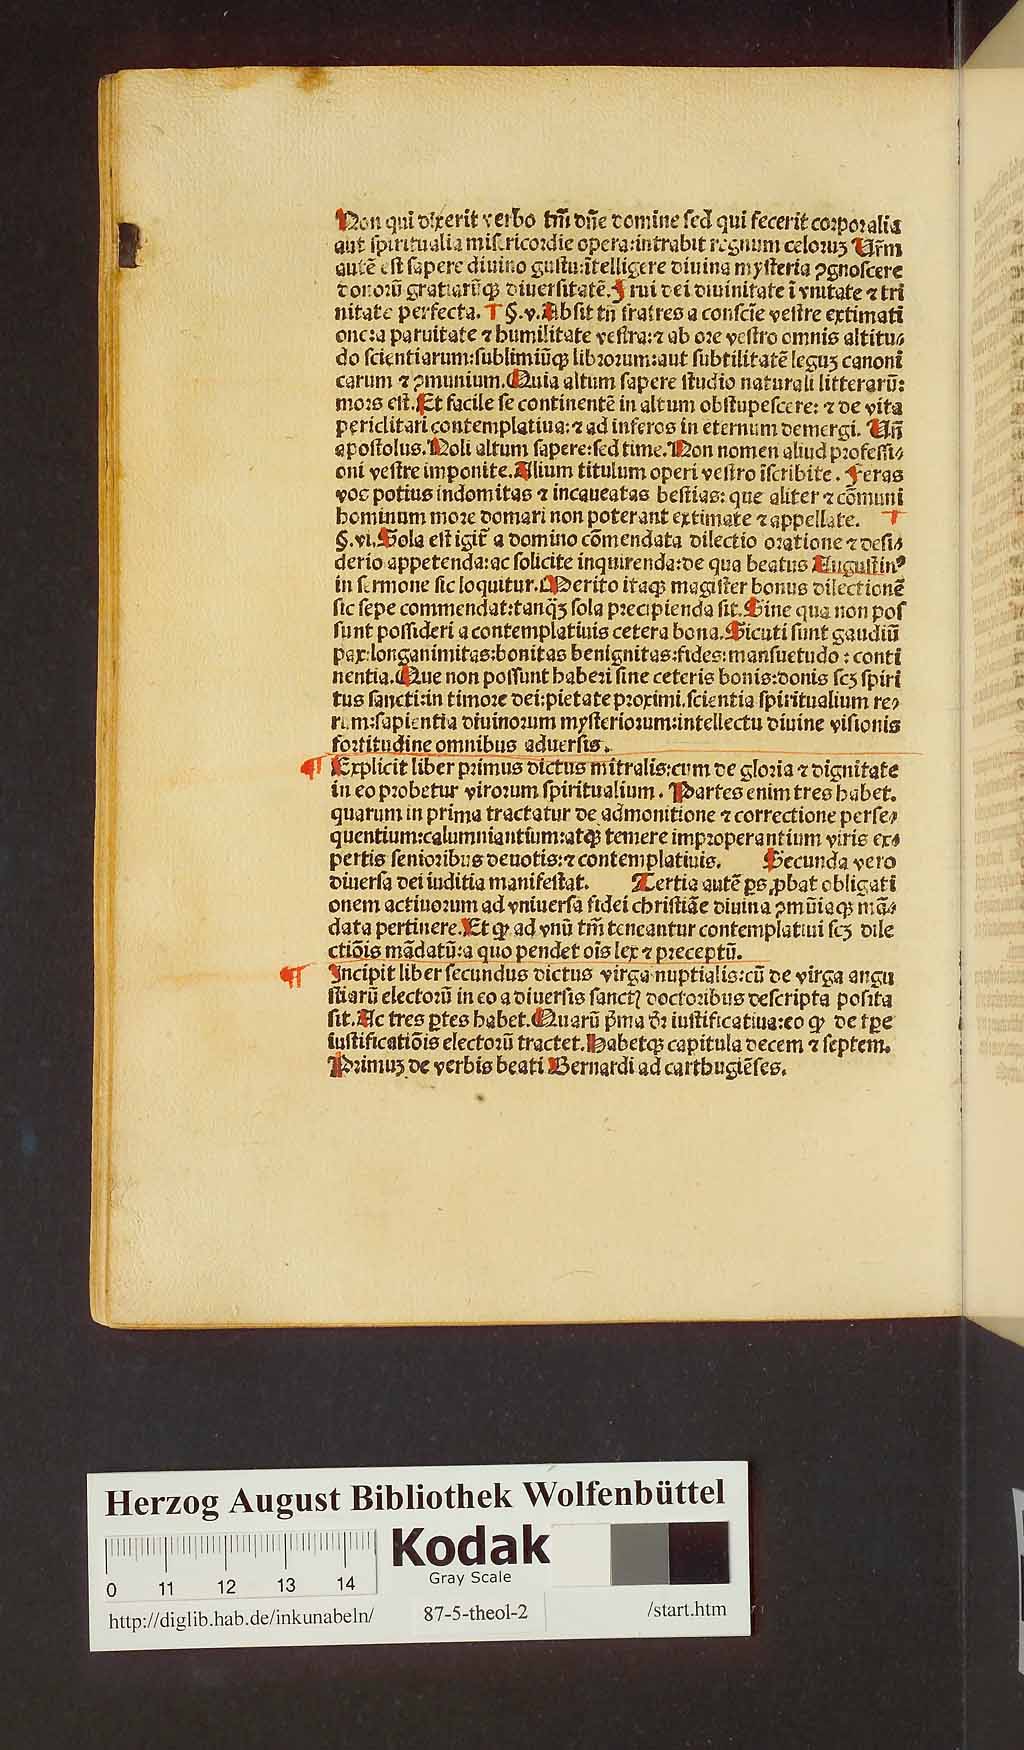 Non qui dixerit verbo tm̄ dn̄e domine sed qui fecerit corporalia
aut spiritualia misericordie opera:intrabit regnum celoruꝫ Vr̄m
autē est sapere diuino gustu:ītelligere diuina mysteria ꝯgnoscere
donorū gratiarūqꝫ diuersitatē. Frui dei diuinitate ī vnitate ⁊ tri
nitate perfecta. §.v. Absit tn̄ fratres a conscīe vestre extimati
one:a paruitate ⁊ humilitate vestra:⁊ ab ore vestro omnis altitu⸗
do scientiarum:sublimiūqꝫ librorum:aut subtilitatē leguꝫ canoni
carum ⁊ ꝯmunium. Quia altum sapere studio naturali litterarū:
mors est. Et facile se continentē in altum obstupescere: ⁊ de vita
periclitari contemplatiua:⁊ ad inferos in eternum demergi. Vn̄
apostolus. Noli altum sapere:sed time. Non nomen aliud professi⸗
oni vestre imponite. Alium titulum operi vestro īscribite. Feras
vos potius indomitas ⁊ incaueatas bestias: que aliter ⁊ cōmuni
hominum more domari non poterant extimate ⁊ appellate.
§.vi. Sola est igit᷑ a domino cōmendata dilectio oratione ⁊ desi⸗
derio appetenda:ac solicite inquirenda:de qua beatus Augustinꝰ
in sermone sic loquitur. Merito itaqꝫ magister bonus dilectionē
sic sepe commendat:tanqꝫ̄ sola precipienda sit. Sine qua non pos
sunt possideri a contemplatiuis cetera bona. Sicuti sunt gaudiū
pax:longanimitas:bonitas benignitas:fides:mansuetudo:conti
nentia. Que non possunt haberi sine ceteris bonis:donis scꝫ spiri
tus sancti:in timore dei:pietate proximi.scientia spiritualium re⸗
rum:sapientia diuinorum mysteriorum:intellectu diuine visionis
fortitudine omnibus aduersis.
¶ Explicit liber primus dictus mitralis:cum de gloria ⁊ dignitate
in eo probetur virorum spiritualium. Partes enim tres habet.
quarum in prima tractatur de admonitione ⁊ correctione perse⸗
quentium:calumniantium:atqꝫ temere improperantium viris ex⸗
pertis senioribus deuotis:⁊ contemplatiuis. Secunda vero
diuersa dei iuditia manifestat. Tertia autē ꝑs ꝓbat obligati
onem actiuorum ad vniuersa fidei christiāe diuina ꝯmūiaqꝫ mā⸗
data pertinere. Et ꝙ ad vnū tm̄ teneantur contemplatiui scꝫ dile
ctiōis mādatū:a quo pendet oīs lex ⁊ preceptū.
¶ Incipit liber secundus dictus virga nuptialis:cū de virga angu
stiarū electorū in eo a diuersis sanctꝭ doctoribus descripta posita
sit. Ac tres ꝑtes habet. Quarū p̄ma dr̄ iustificatiua:eo ꝙ de tꝑe
iustificatiōis electorū tractet. Habetqꝫ capitula decem ⁊ septem.
Primuꝫ de verbis beati Bernardi ad carthugiēses.
Herzog August Bibliothek Wolfenbüttel
Kodak
Gray Scale
0 11 12 13 14
http://diglib.hab.de/inkunabeln/ 87-5-theol-2 /start.htm